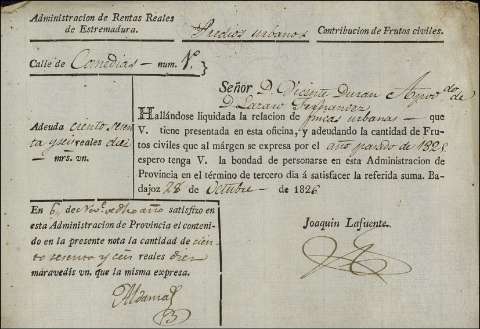 Administracion de Rentas Reales
de Estremadura.
Predios urbanos
Contribucion de Frutos civiles.
Calle de Comedias — num. N.º
Señor D. Vicente Duran Apod.do de
D. Lazaro Fernandez
Hallándose liquidada la relacion de fincas urbanas — que
V. tiene presentada en esta oficina, y adeudando la cantidad de Fru-
tos civiles que al márgen se expresa por el año pasado de 1825
espero tenga V. la bondad de personarse en esta Administracion de
Provincia en el término de tercero dia á satisfacer la referida suma. Ba-
dajoz 28 de Octubre — de 1826
Adeuda ciento sesen
ta y seis reales diez
— mrs. vn.
En 6 de Nov.e de dho año satisfizo en
esta Administracion de Provincia el conteni-
do en la presente nota la cantidad de cien
to sesenta y seis reales diez
maravedís vn. que la misma expresa.
Joaquin Lafuente.